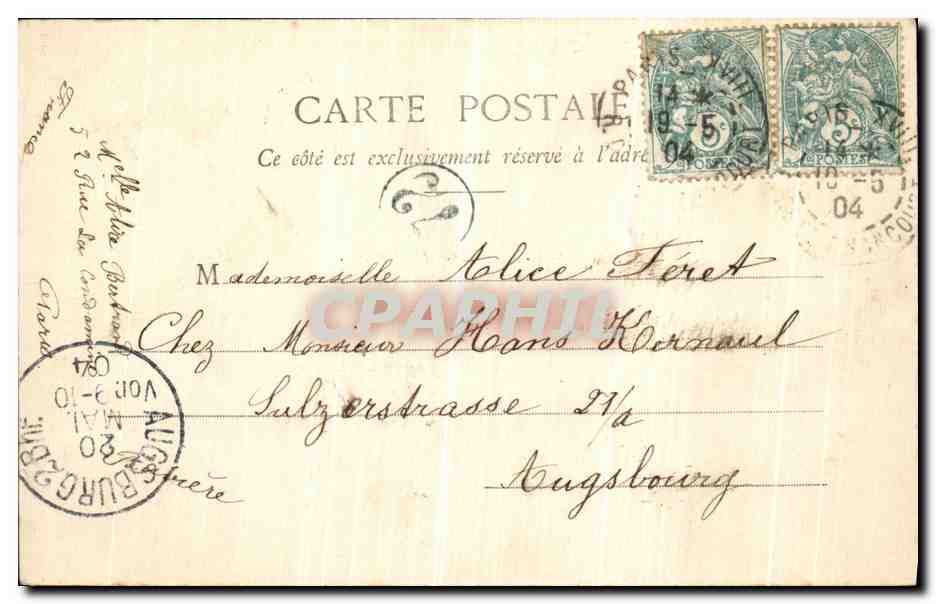 CARTE POSTALE
Ce côté est exclusivement réservé à l'adre
Mademoiselle Alice Féret
Chez Monsieur Hans Kornaul
Sulzerstrasse 21/a
Augsbourg
Bavière
Melle Bertrand
52 Rue La Condamine
Paris
France
AUGSBURG 2 BHF.
20
MAI
VOR. 9-10
04
PARIS
14 *
19 - 5
04
5c
POSTES
PARIS
14 *
19 - 5
04
5c
POSTES
CPAPHIL